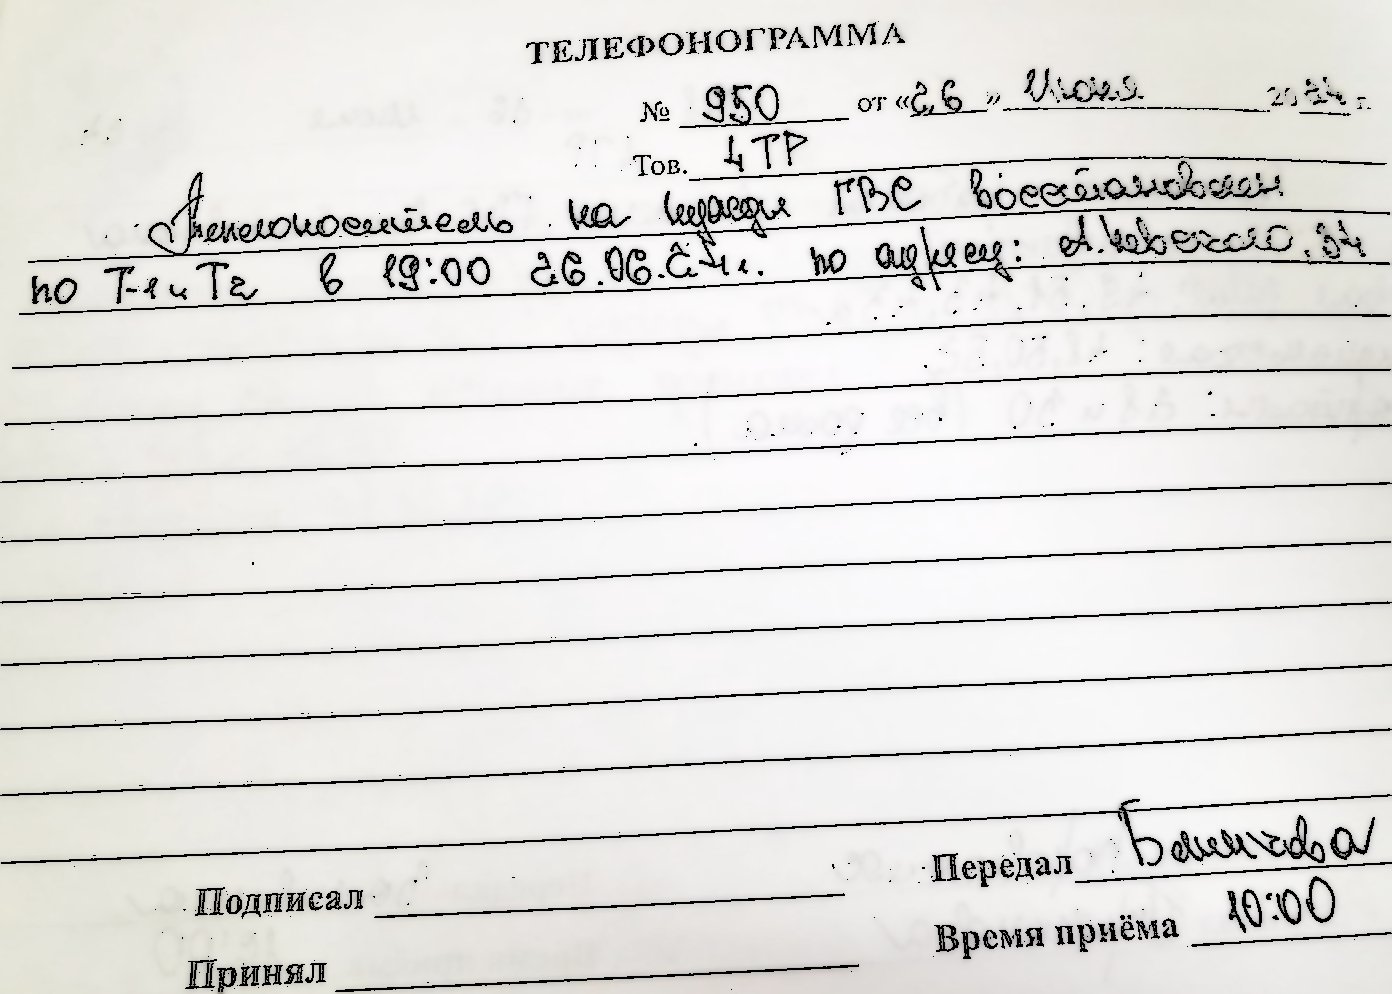 ТЕЛЕФОНОГРАММА
№ 950 от «26» Июня 2024 г.
Тов. 4 ТР
Теплоноситель на нужды ГВС восстановлен
по Т-1 и Т2 в 19:00 26.06.24г. по адресу: А.Невского, 34
Передал
Подписал
Время приёма 10:00
Принял